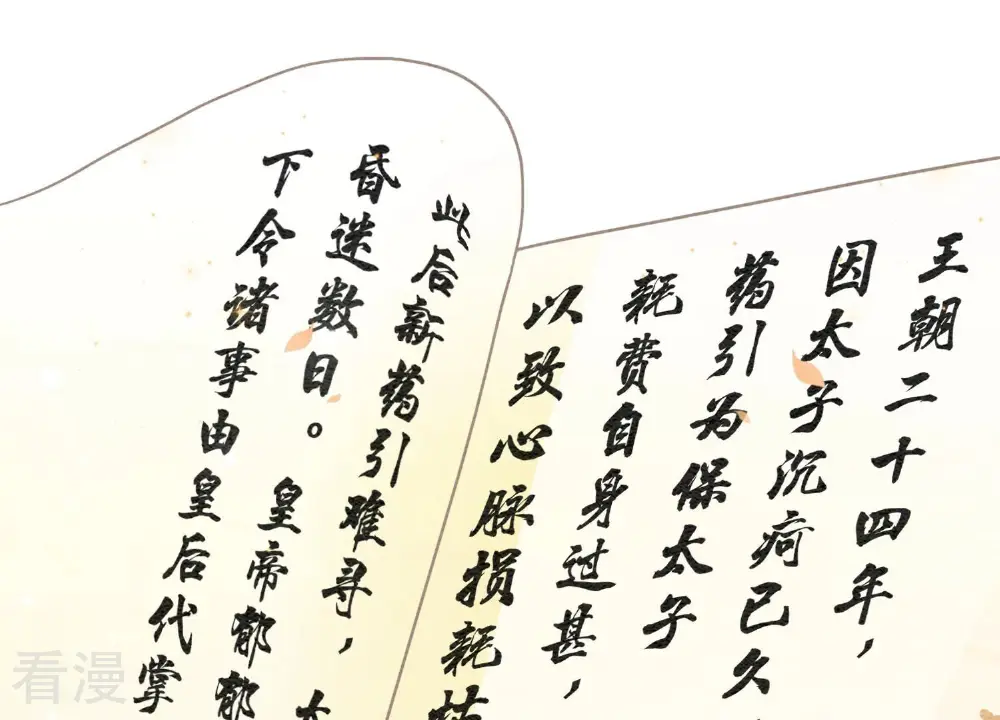 王朝二十四年，
因太子沉疴已久
药引为保太子
耗费自身过甚，
以致心脉损耗
此后新药引难寻，
昏迷数日。皇帝郁郁
下令诸事由皇后代掌
看漫